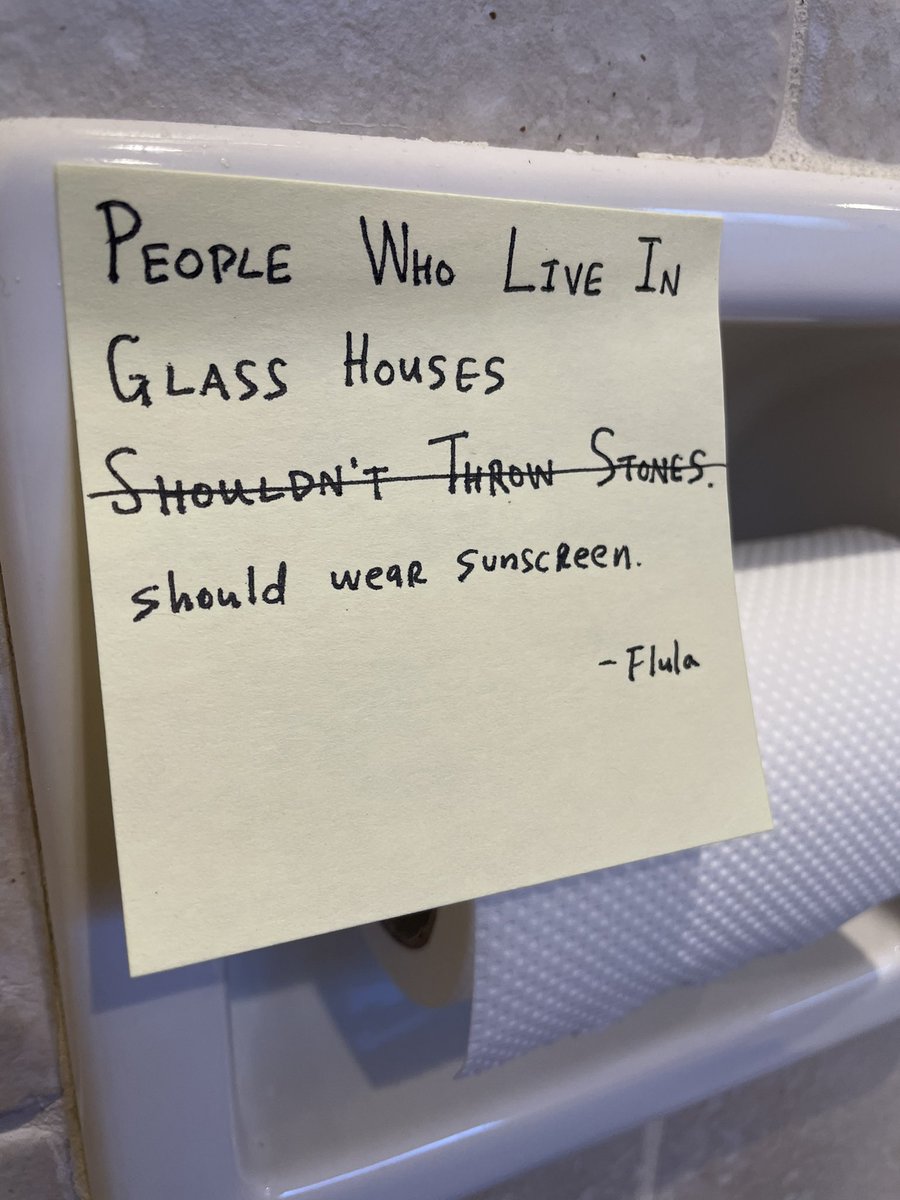 People Who Live In
Glass Houses
Shouldn't Throw Stones.
should wear sunscreen.
- Flula